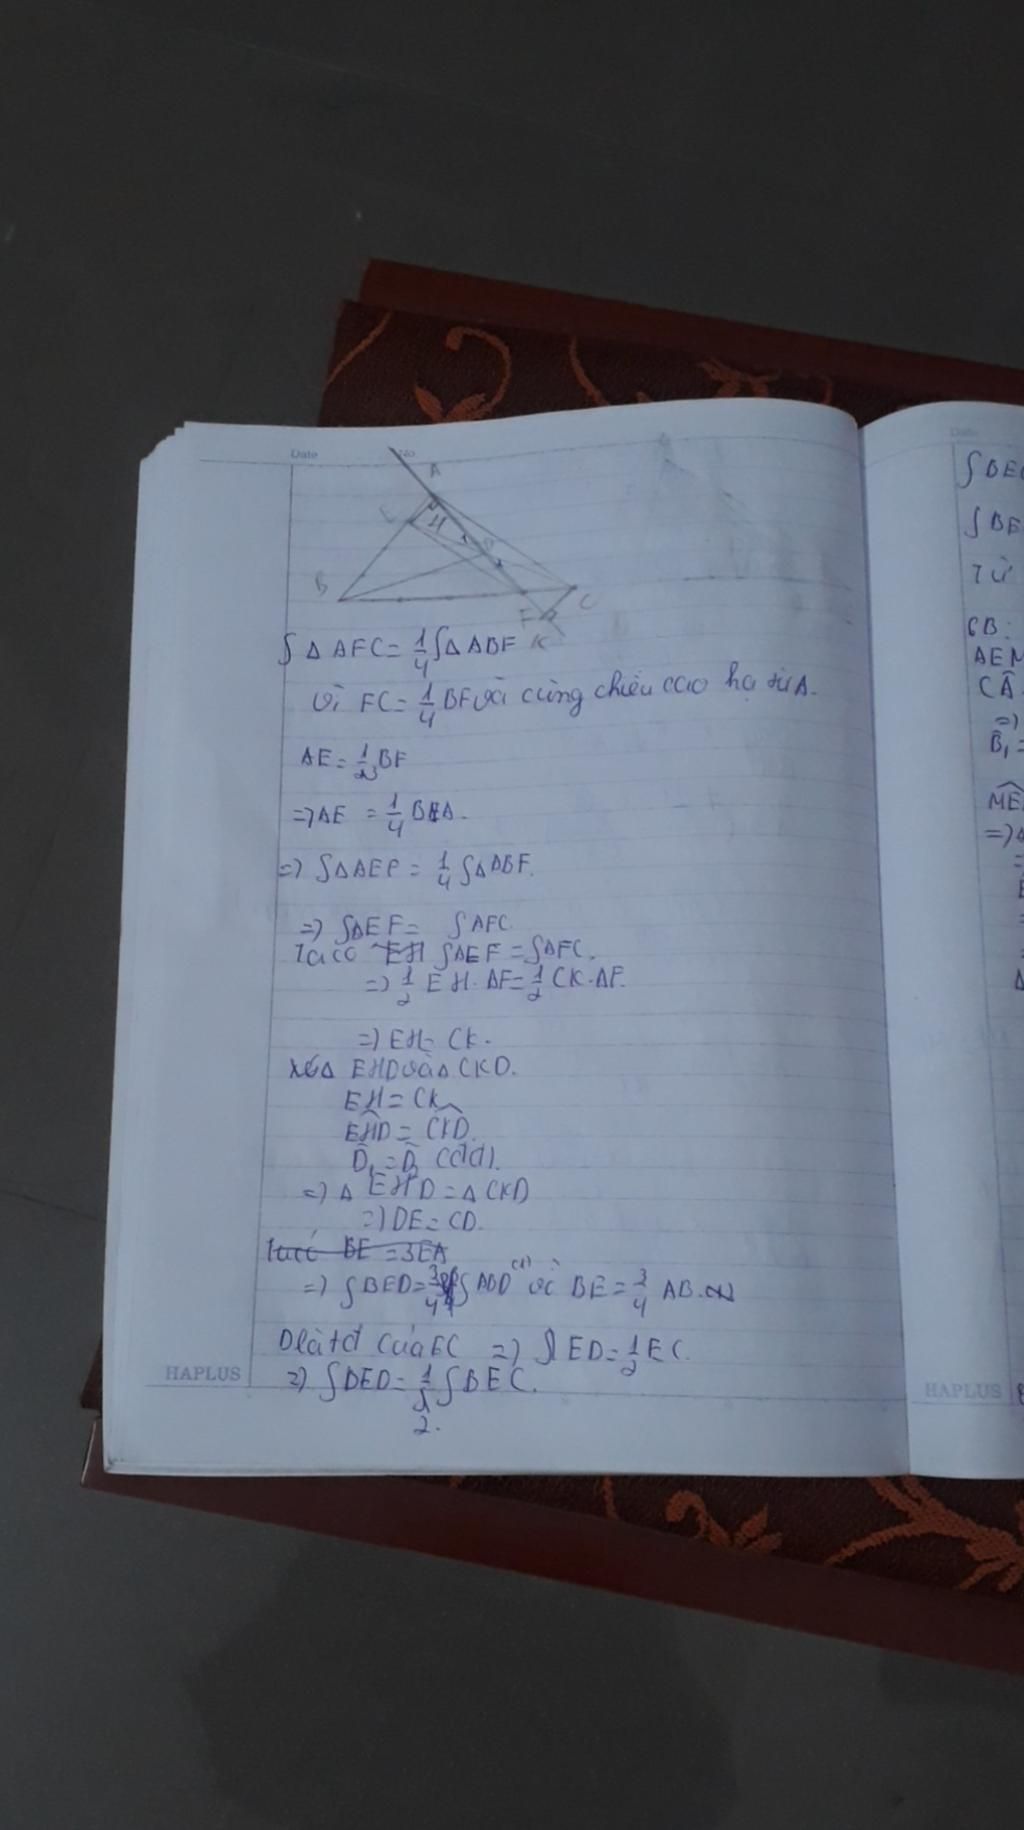 Date No
A
E H 1 D 2
B C
F K
S Δ AFC = 1/4 S Δ ABF
Vì FC = 1/4 BF và cùng chiều cao hạ từ A.
AE = 1/3 BF
=> AE = 1/4 BA.
=> S Δ AEF = 1/4 S Δ ABF.
=> S AEF = S AFC.
Ta có S AEF = S AFC.
=> 1/2 EH. AF = 1/2 CK. AF.
=> EH = CK.
Xét Δ EHD và Δ CKD.
EH = CK
EHD = CKD.
D̂1 = D̂2 (đđ).
=> Δ EHD = Δ CKD
=> DE = CD.
BE = 3EA
=> S BED = 3/4 S ABD (1) vì BE = 3/4 AB.
D là tđ của EC => ED = 1/2 EC.
=> S BED = 1/2 S BEC.
2.
HAPLUS
Date
S BEC
S BE
Từ
CB:
AEM
CÂ
=>
B̂1 =
ME
=> Δ
HAPLUS